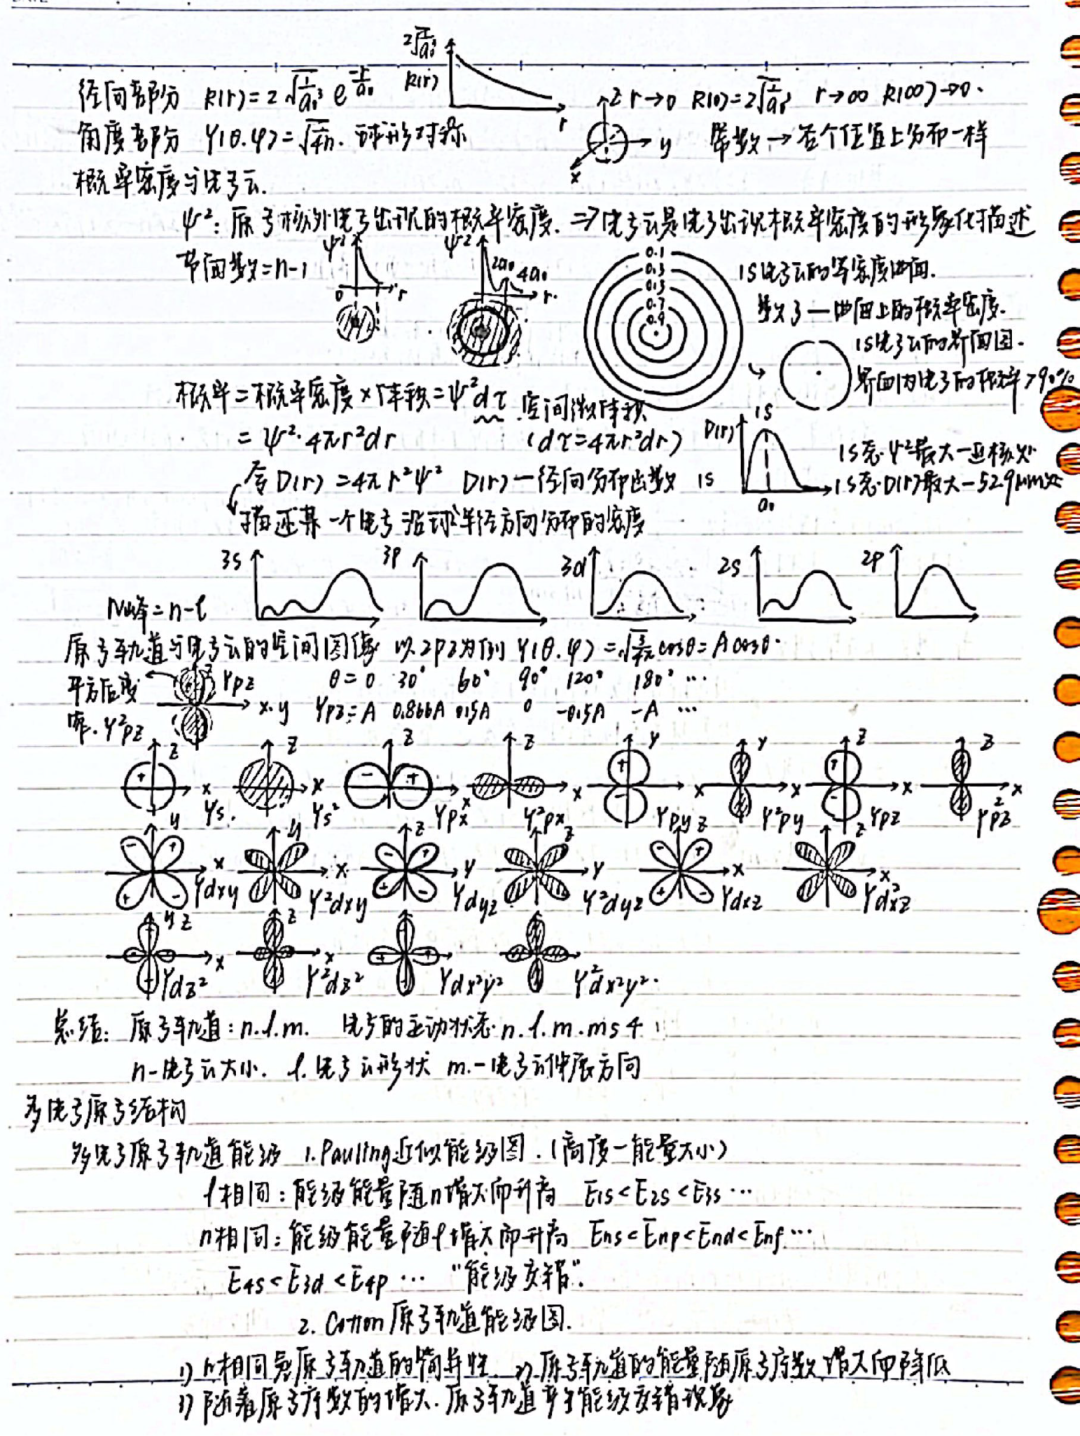 2√1/a₀³
R(r)
r
径向部分 R(r)=2√(1/a₀³) e^(-r/a₀)
z r→0 R(0)=2√(1/a₀³) r→∞ R(∞)→0.
y
x
角度部分 Y(θ.φ)=√(1/4π). 球形对称
常数→各个位置上分布一样
概率密度与电子云.
ψ²: 原子核外电子出现的概率密度. ⇒电子云是电子出现概率密度的形象化描述
节面数=n-1
ψ² 0 r
ψ² 2a₀ 4a₀ r.
0.1
0.3
0.5
0.7
0.9
1s电子云的等密度曲面.
数字—曲面上的概率密度.
1s电子云的界面图.
界面内电子的概率>90%
概率=概率密度×体积=ψ²dτ 空间微体积
=ψ²·4πr²dr (dτ=4πr²dr)
D(r) 1s
a₀
1s态·ψ²最大—近核处
1s态·D(r)最大—52.9pm处
令D(r)=4πr²ψ² D(r)—径向分布函数 1s
描述某一个电子沿球半径方向分布的密度
3s 3p 3d 2s 2p
N峰=n-l
原子轨道与电子云的空间图像 以2pz为例 Y(θ.φ)=√(3/4π)cosθ=Acosθ.
平方后变
瘦. Y²pz
Ypz
x.y
θ=0 30° 60° 90° 120° 180° ···
Ypz=A 0.866A 0.5A 0 -0.5A -A ···
z z z z y y z z
+ - + + - + -
x x x x x x x x
Ys. Ys² Ypx Y²px Ypy Y²py Ypz Y²pz
y y z z z z
x x y y x x
Ydxy Y²dxy Ydyz Y²dyz Ydxz Y²dxz
z z
x x
Ydz² Y²dz² Ydx²y² Y²dx²y².
总结: 原子轨道: n.l.m. 电子的运动状态: n.l.m.ms 4个
n-电子云大小. l.电子云形状 m.-电子云伸展方向
多电子原子结构
多电子原子轨道能级 1.Pauling近似能级图.(高度—能量大小)
l相同: 能级能量随n增大而升高 E1s<E2s<E3s···
n相同: 能级能量随l增大而升高 Ens<Enp<End<Enf···
E4s<E3d<E4p··· “能级交错”.
2. Cotton原子轨道能级图.
1) n相同氢原子轨道的简并性 2) 原子轨道的能量随原子序数增大而降低
3) 随着原子序数的增大.原子轨道产生能级交错现象